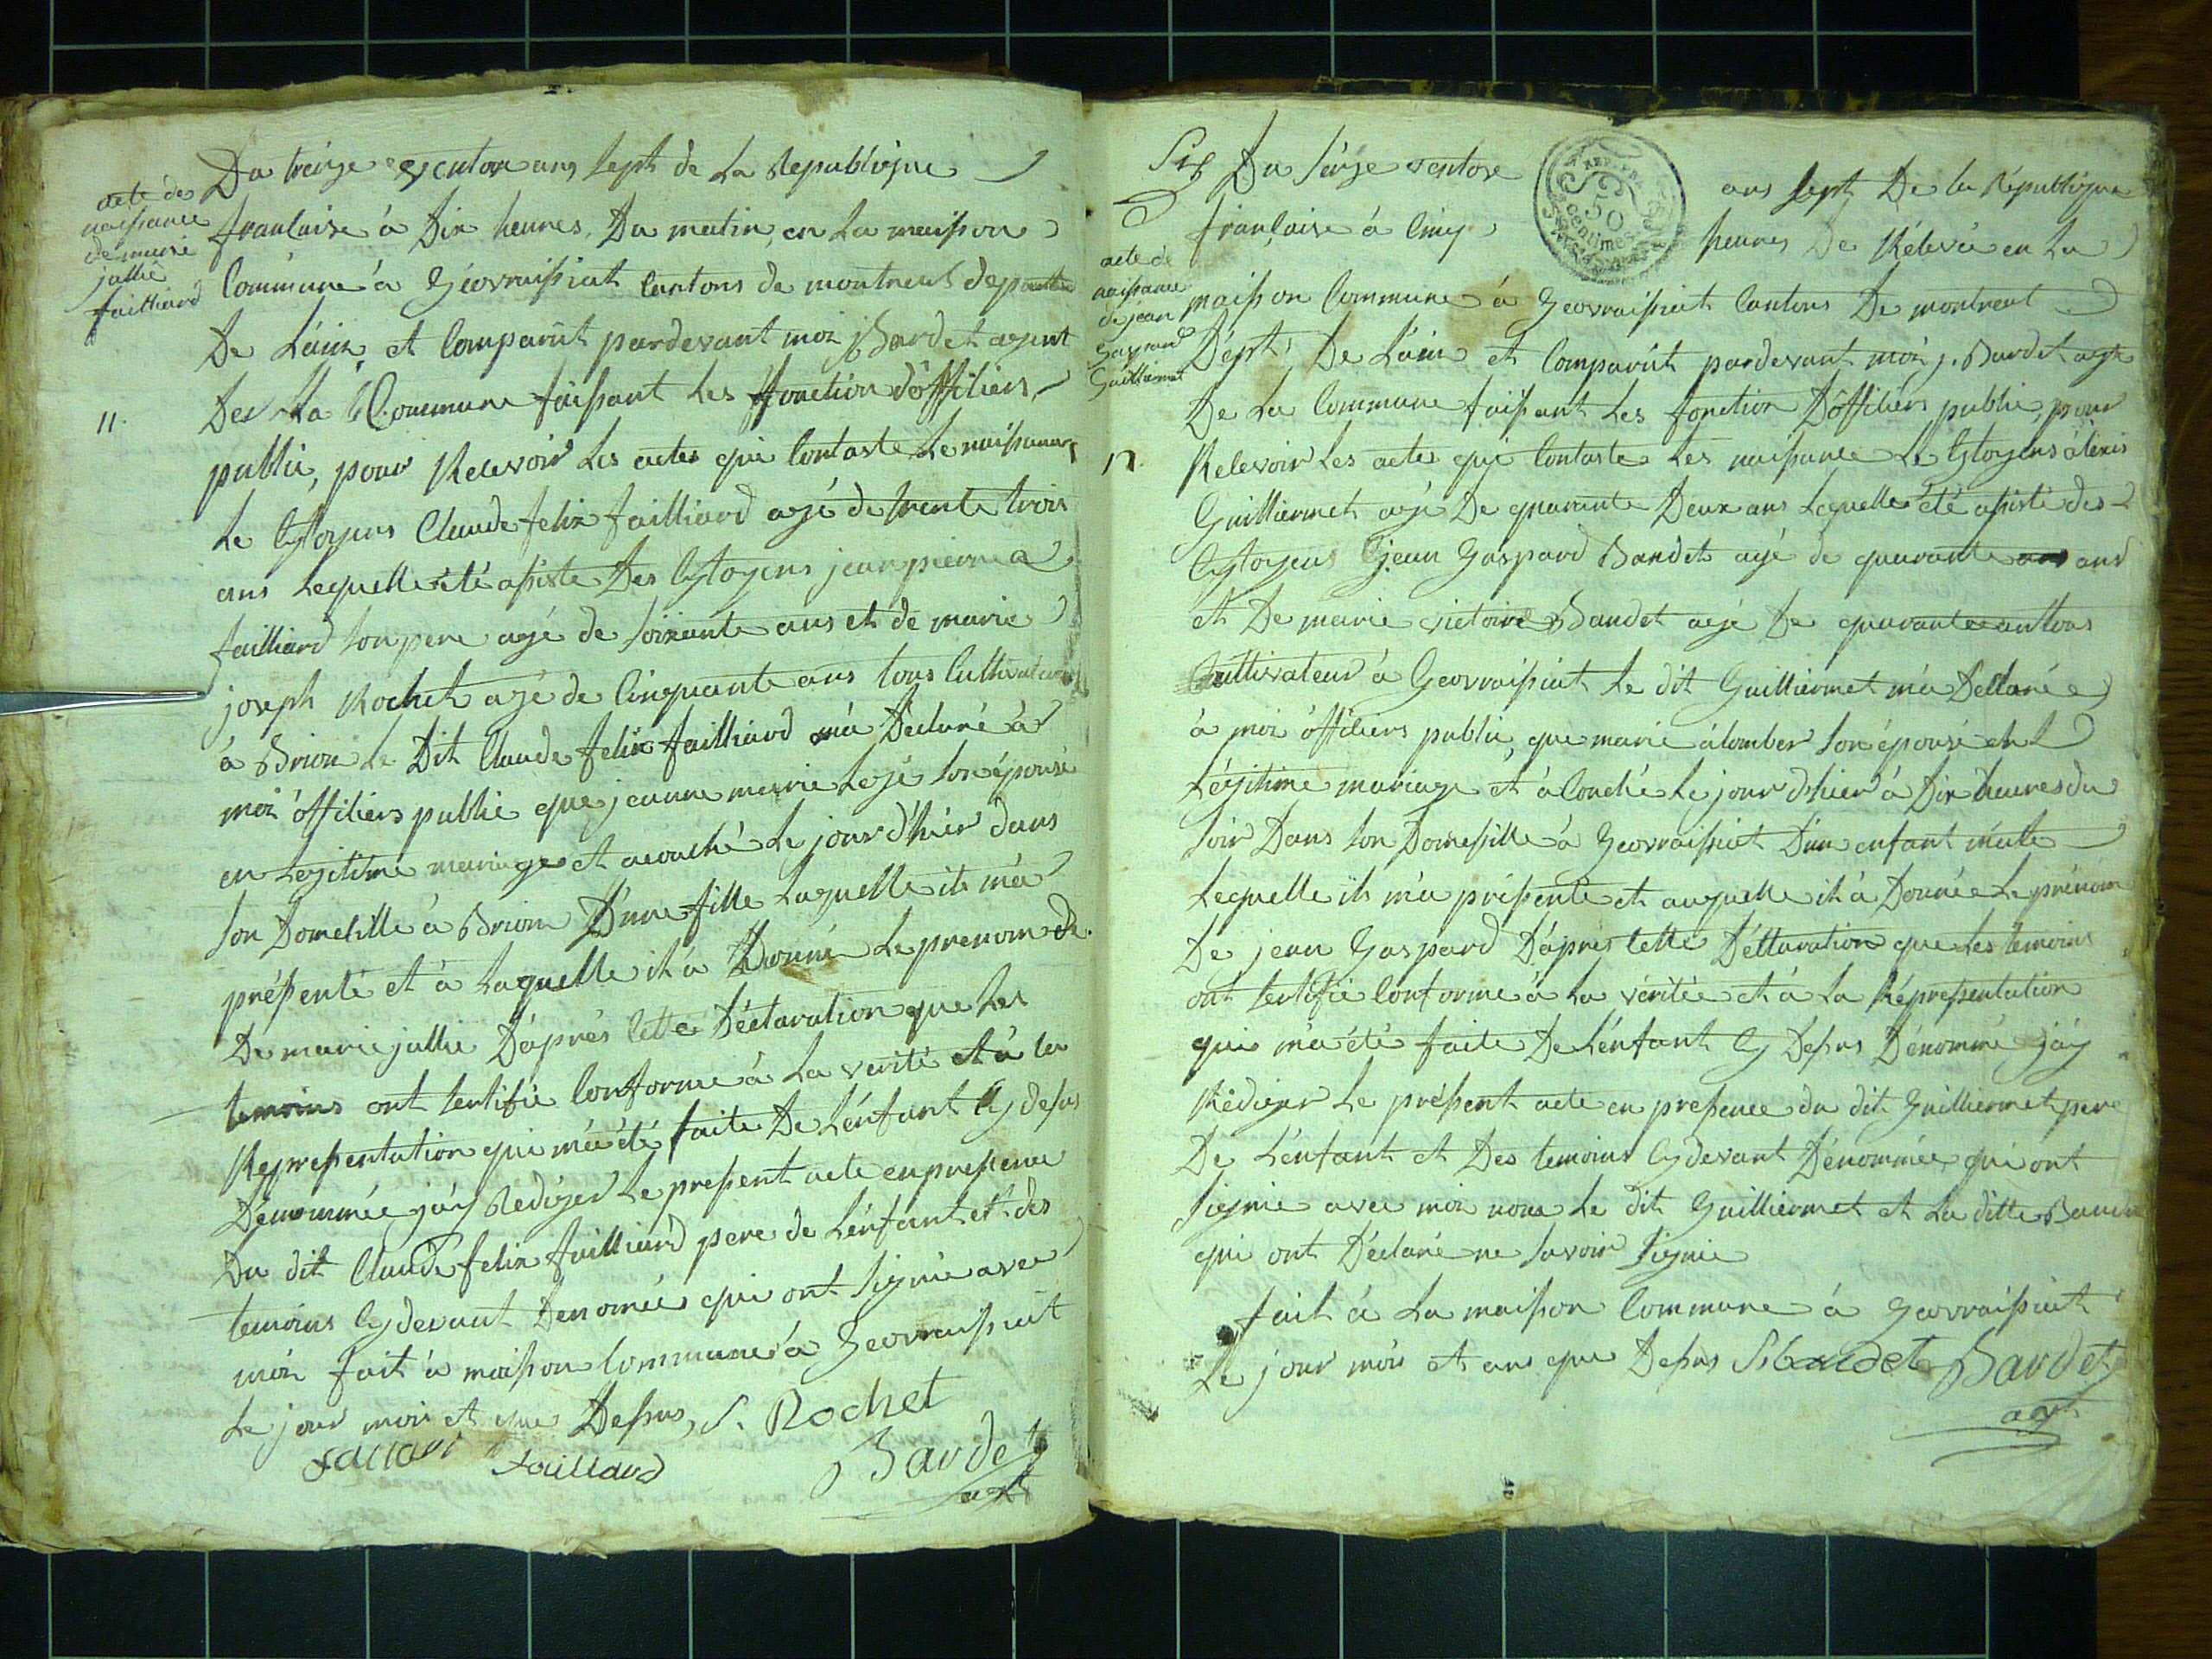 acte de
naissance
de marie
jullie
failliard
11.
Du treize ventose ans sept de La Republique
franlaise à Dix heures Du matin, en La maison
Commune à Géovraissiat Cantons de montreul
De L'ain, et Comparût pardevant moi j Bardet agent
Des La Commune faissant Les fonction d'offiliers
public, pour Relevoir Les actes qui Contaste Le naissance
Le Cytoyens Claude felix failliard agé de trente trois
ans Lequelle été assiste Des Cytoyens jean pierre
failliard son pere agé de soixante ans et de marie
joseph Rochet agé de Cinquante ans tous Cultivateur
à Brion Le Dit Claude felix failliard m'a Déclaré à
moi offiliers public que jeanne marie Legé son épouse
en Legitime mariage et acouché Le jour d'hier dans
son Domelille à Brion D'une fille Laquelle il m'a
préssenté et à Laquelle il à Donné Le prenom de
De marie jullie D'aprés Cette Déclaration que Les
temoins ont sertifié Conforme à La verité et à la
Représsentation qui m'a été faite De L'énfant Cy dessus
Dénommée j'ay Rediger Le pressent acte en pressence
Du dit Claude felix failliard pere de L'énfant et des
temoins Cy devant Denomée qui ont signié avec
moi fait à maison Commune à Geovraissiat
Le jour mois et que Dessus, S. Rochet
faillard Bardet
agt
Du seize ventose ans sept De la République
française à Cinq heures De Rélevé en La
acte de
naissance
de jean
Gaspard
Guilliermet
12.
maison Commune à Geovraissiat Cantons De montreul
Dépt De L'ain et Comparût pardevant moi j. Bardet agt
De La Commune faissant Les fonction D'offiliers public, pour
Relevoir Les actes qui Contaste Les naissance Le Cytoyens aléxis
Guilliermet agé De quarante Deux ans Lequelle été assisté des
Cytoyens jean Gaspard Baudet agé de quarante ans
et De marie victoire Baudet agé De quarante an tous
Cultivateur à Geovraissiat Le dit Guilliermet m'a Déclaré
à moi offiliers public, que marie álomber son épouse en
Légitime mariage et à Couché Le jour d'hier à Dix heures du
soir Dans son Domessille à Geovraissiat D'un enfant mâle
Lequelle il m'a préssenté et auquelle il à Donné Le prénom
De jean Gaspard D'aprés Cette Déclaration que Les temoins
ont sertifié Conforme à La véritée et à La Répressentation
qui m'a été faite De L'énfant Cy Dessus Dénommé j'ay
Rédiger Le préssent acte en pressence du dit Guilliermet pere
De L'énfant et Des temoins Cy devant Dénommée, qui ont
signié avec moi non Le dit Guilliermet et La ditte Baudet
qui ont Déclaré ne savoir signié
fait à La maison Commune à Geovraissiat
Le jour mois et ans que Dessus Baudet Bardet
agt
50
Centimes